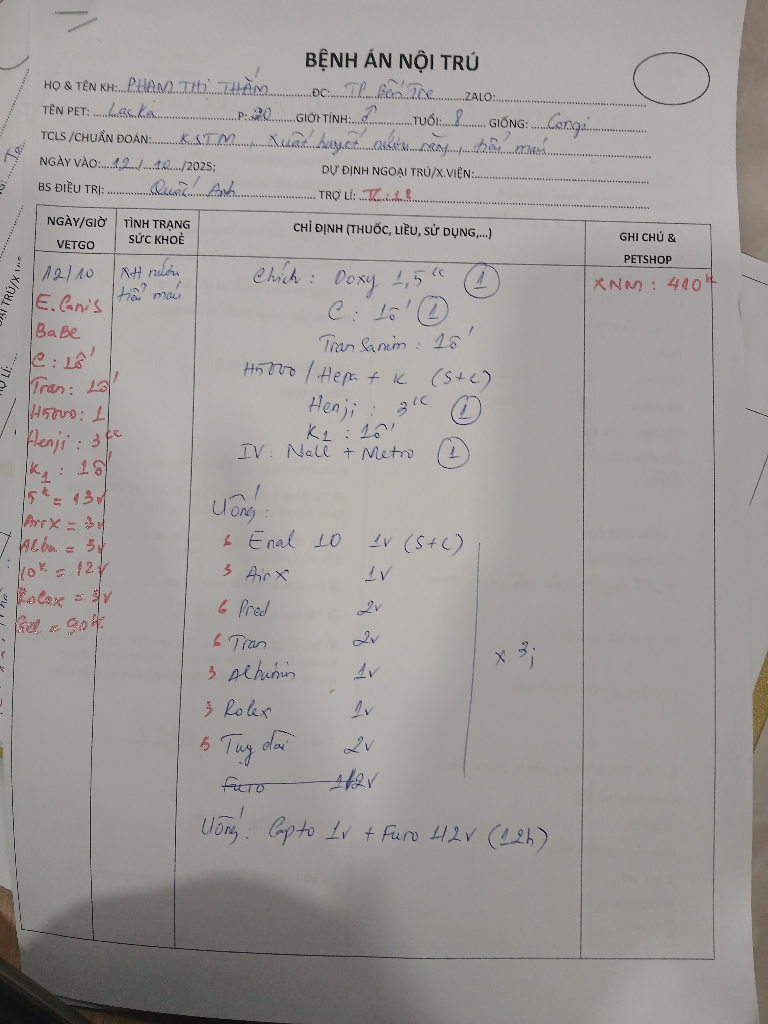 BỆNH ÁN NỘI TRÚ
HỌ & TÊN KH: PHẠM THỊ THẮM ĐC: TP Bến Tre ZALO:
TÊN PET: Lacka P: 20 GIỚI TÍNH: ♂ TUỔI: 8 GIỐNG: Corgi
TCLS /CHUẨN ĐOÁN: KSTM, xuất huyết nướu răng, tiểu máu
NGÀY VÀO: 12/10/2025; DỰ ĐỊNH NGOẠI TRÚ/X.VIỆN:
BS ĐIỀU TRỊ: Quốc Anh TRỢ LÍ:
NGÀY/GIỜ VETGO
TÌNH TRẠNG SỨC KHOẺ
CHỈ ĐỊNH (THUỐC, LIỀU, SỬ DỤNG,...)
GHI CHÚ & PETSHOP
12/10
E.Canis
BaBe
C: 1ố
Tran: 1ố
H5000: 1
Henji: 3cc
K1: 1ố
5k = 13v
AirX = 3v
Alba = 3v
10k = 12v
Rolex = 3v
= 90k
XH nướu
tiểu máu
Chích: Doxy 1,5cc 1
C: 1ố 1
Tran Sanim: 1ố
H5000/Hepa + K (S+C)
Henji: 3cc 1
K1: 1ố
IV: Nacl + Metro 1
Uống:
6 Enal 10 1v (S+C)
3 AirX 1v
6 Pred 2v
6 Tran 2v
3 Albumin 1v
3 Rolex 1v
Tuỵ đài 2v
Furo 1/2v
x 3j
Uống: Capto 1v + Furo 1/2v (12h)
XNM: 410k